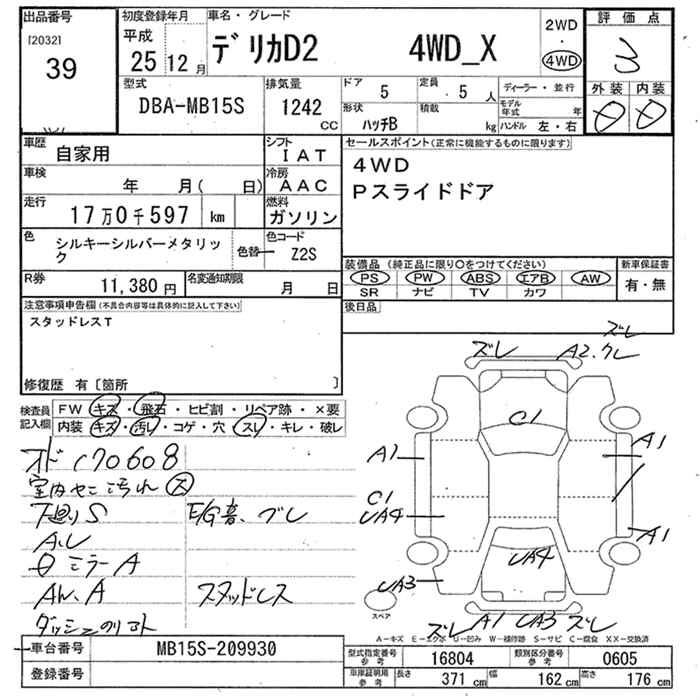 出品番号 初度登録年月 車名・グレード 2WD 評価点
[2032] 平成 ・ 3
39 25 12月 デリカD2 4WD_X 4WD
型式 排気量 ドア 定員 ディーラー・並行 外装 内装
DBA-MB15S 1242 CC 5 5人 モデル年式 年
形状 積載
ハッチB kg ハンドル 左・右
車歴 シフト セールスポイント(正常に機能するものに限ります)
自家用 IAT 4WD
車検 冷房 Pスライドドア
年 月( 日) AAC
走行 燃料
17万0千597 km ガソリン
色 色替 色コード
シルキーシルバーメタリック Z2S
装備品(純正品に限り○をつけてください) 新車保証書
R券 名変通知期限 PS PW ABS エアB AW 有・無
11,380円 月 日 SR ナビ TV カワ
注意事項申告欄(不具合内容等は具体的に記入して下さい) 後日品
スタッドレスT
修復歴 有〔箇所 〕
検査員記入欄 FW キズ・飛石・ヒビ割・リペア跡・×要
内装 キズ・汚レ・コゲ・穴・スレ・キレ・破レ
ズレ
ズレ A2.クレ
C1
A1 A1
C1
UA4
UA4 A1
UA3
スペア
ズレ A1 UA3 ズレ
オド 170608
室内 汚れ 大
下廻りS E/G音、ブレ
A.U
ミラーA
AW.A スタッドレス
A-キズ E-エクボ U-凹み W-補修跡 S-サビ C-腐食 XX-交換済
車台番号 MB15S-209930
登録番号
型式指定番号 参考 16804 類別区分番号 参考 0605
車庫証明用 参考 長さ 371 cm 幅 162 cm 高さ 176 cm